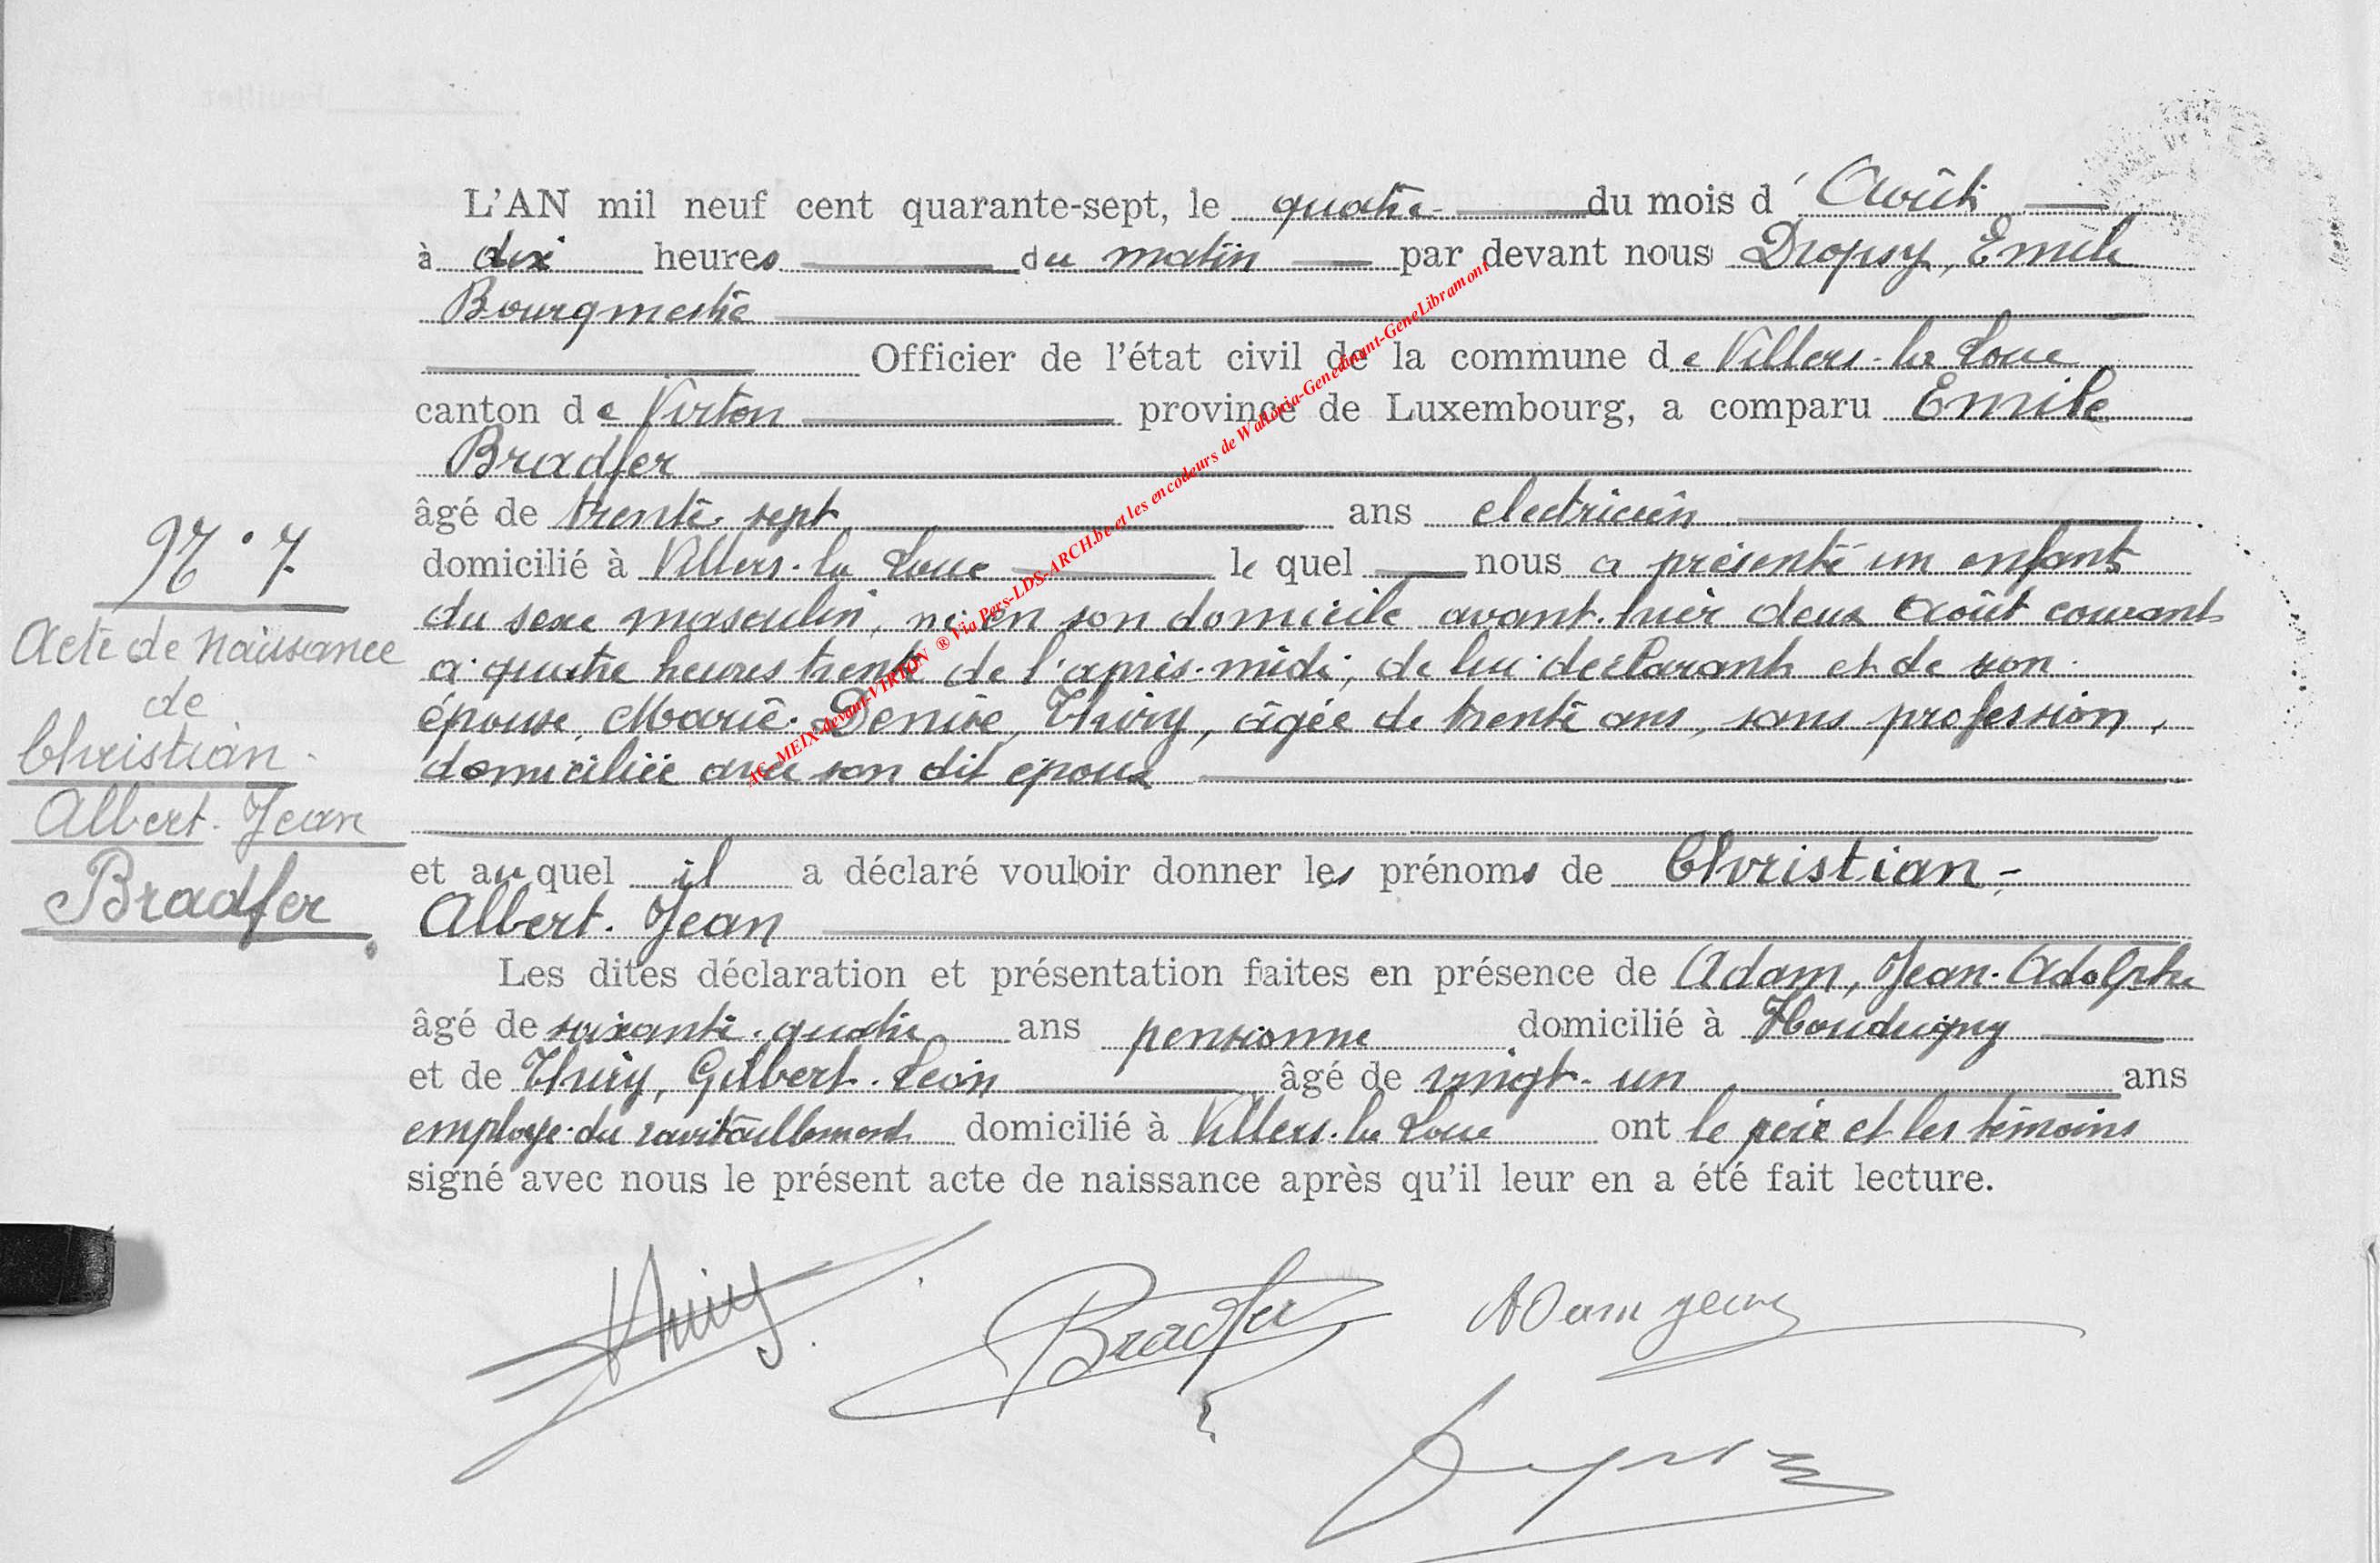 L'AN mil neuf cent quarante-sept, le quatre du mois d'Août
à dix heures du matin par devant nous Dropsy, Emile
Bourgmestre
Officier de l'état civil de la commune de Villers-la-Loue
canton de Virton province de Luxembourg, a comparu Emile
Bradfer
âgé de trente-sept ans electricien
domicilié à Villers-la-Loue le quel nous a présenté un enfant
du sexe masculin, né en son domicile avant-hier deux Août courant
à quatre heures trente de l'après-midi, de lui déclarant et de son
épouse, Marie-Denise, Thiry, âgée de trente ans, sans profession,
domiciliée avec son dit époux
et au quel il a déclaré vouloir donner les prénoms de Christian-
Albert-Jean
Les dites déclaration et présentation faites en présence de Adam, Jean-Adolphe
âgé de soixante-quatre ans pensionné domicilié à Houdrigny
et de Thiry, Gilbert-Léon âgé de vingt-un ans
employé du ravitaillement domicilié à Villers-la-Loue ont le père et les témoins
signé avec nous le présent acte de naissance après qu'il leur en a été fait lecture.
N°7
Acte de Naissance
de
Christian-
Albert-Jean
Bradfer
AG-MEIX-devant-VIRTON ® Via Pers-LDS-ARCH.be et les encodeurs de Wallonia-Genedinant-GeneLibramont
Thiry Bradfer Adam Jean
Dropsy